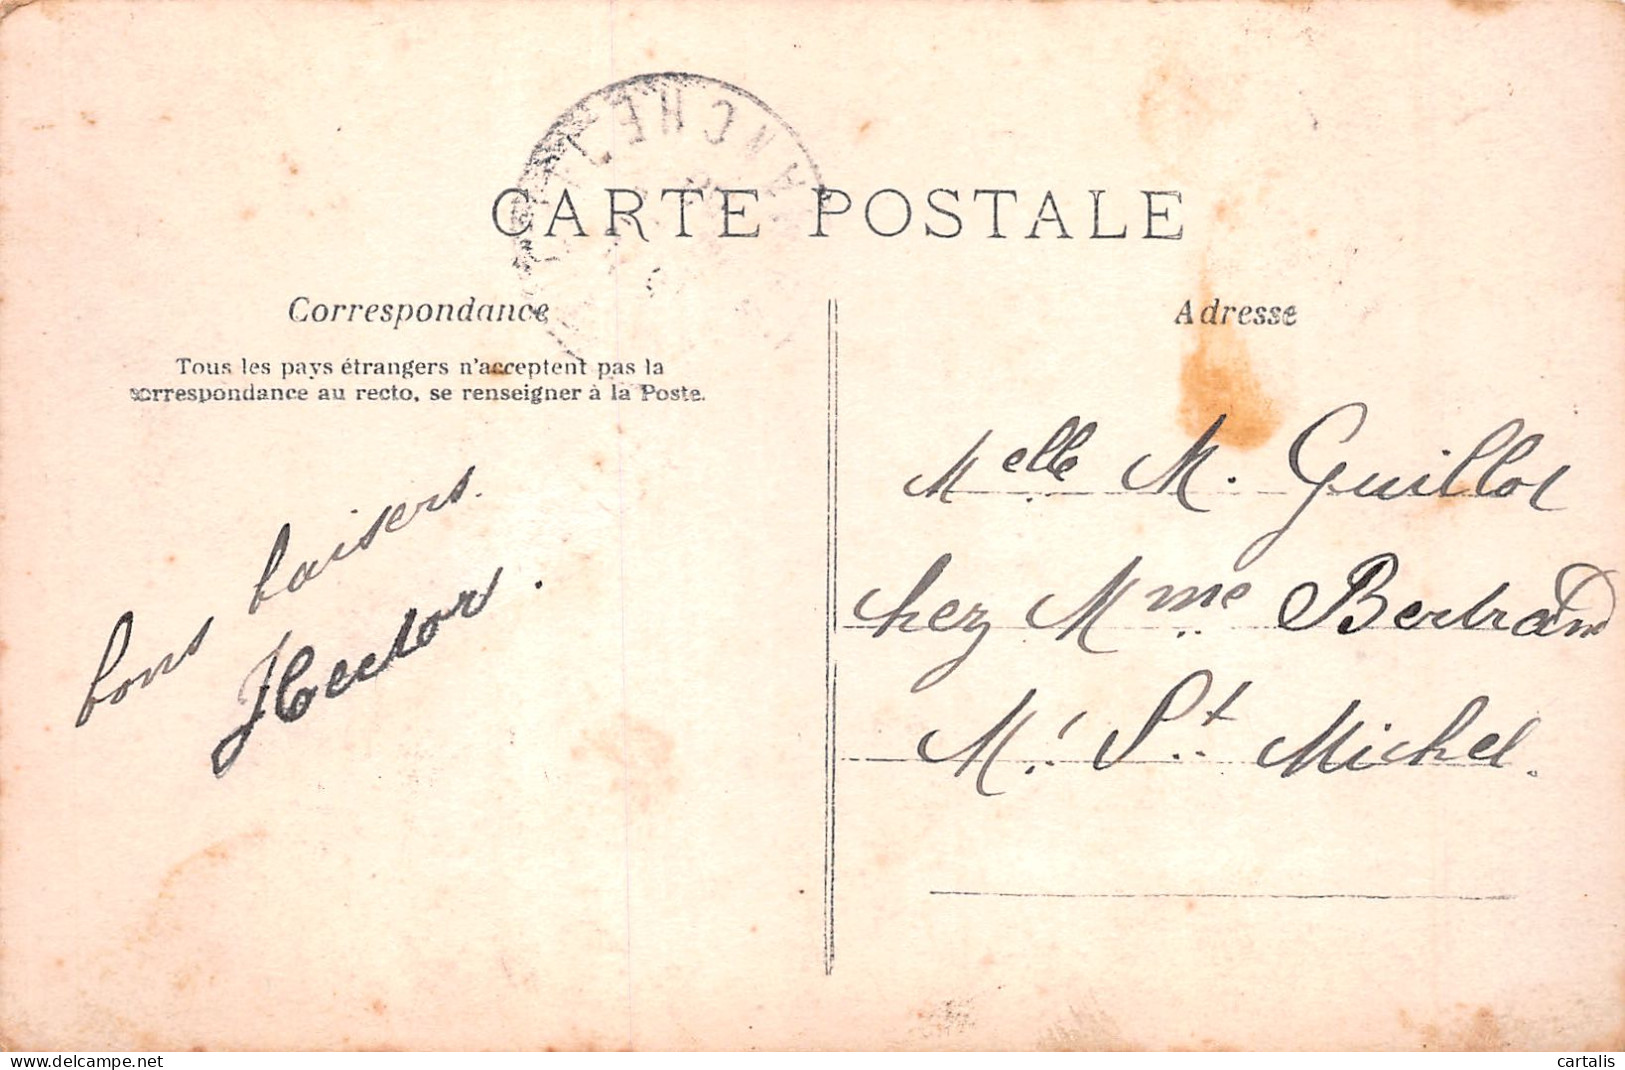 CARTE POSTALE
Correspondance
Tous les pays étrangers n'acceptent pas la
correspondance au recto, se renseigner à la Poste.
bons baisers.
Hector.
Adresse
Melle M. Guillot
chez Mme Bertrand
Mt St Michel.
delcampe.net
cartalis